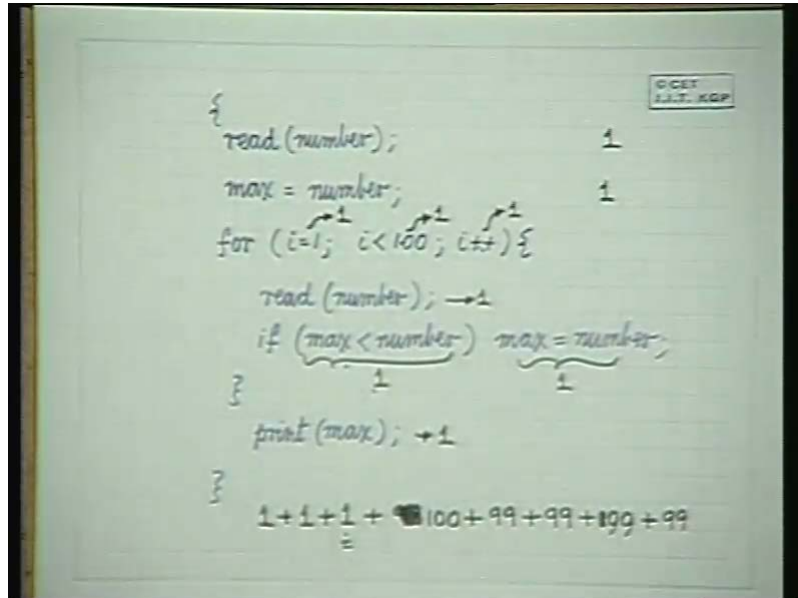 © CET
I.I.T. KGP
{
read (number); 1
max = number; 1
1 1 1
for (i=1; i<100; i++) {
read (number); → 1
if (max < number) max = number;
1 1
}
print (max); → 1
}
1 + 1 + 1 + 100 + 99 + 99 + 99 + 99